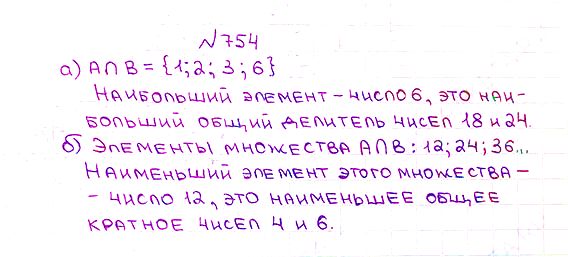 №754
а) А∩В = {1; 2; 3; 6}
Наибольший элемент – число 6, это наи-
больший общий делитель чисел 18 и 24.
б) Элементы множества А∩В: 12; 24; 36...
Наименьший элемент этого множества –
– число 12, это наименьшее общее
кратное чисел 4 и 6.